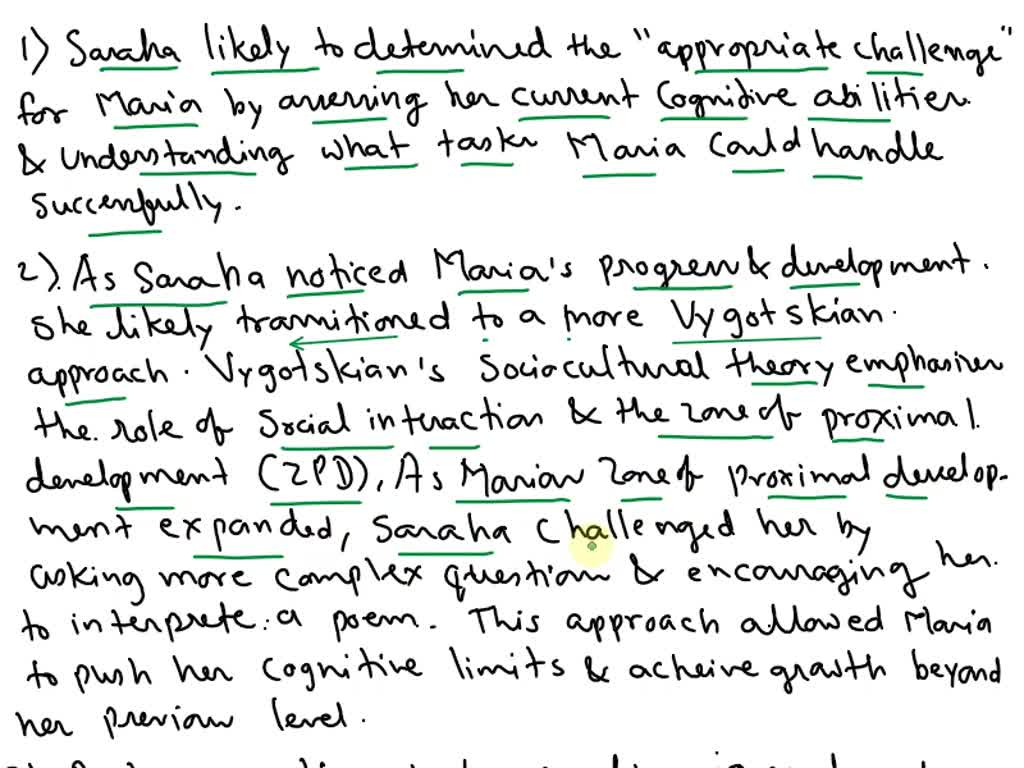 1) Saraha likely to determined the "appropriate challenge"
for Maria by assessing her current Cognitive abilities.
& Understanding what tasks Maria Could handle
successfully.
2). As Saraha noticed Maria's progress & development.
She likely transitioned to a more Vygotskian.
approach. Vygotskian's Sociocultural theory emphasises
the role of Social interaction & the zone of proximal
development (ZPD), As Marias Zone of proximal develop-
ment expanded, Saraha challenged her by
asking more complex question & encouraging her.
to interprete a poem. This approach allowed Maria
to push her cognitive limits & acheive growth beyond
her previous level.